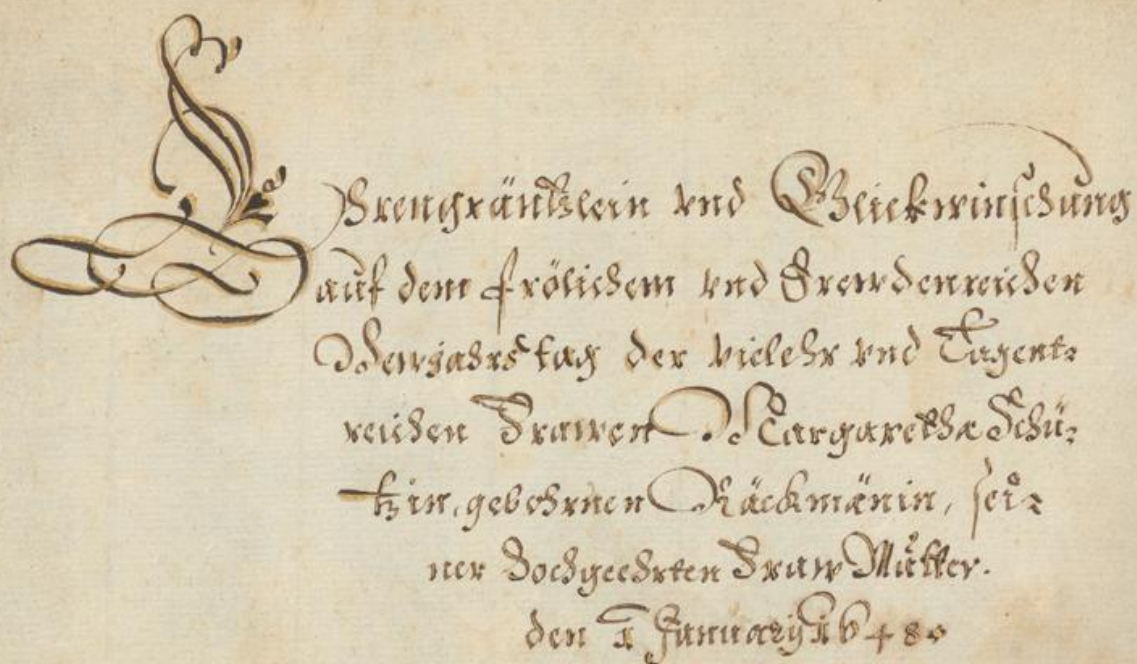 Ehrengräntzlein vnd Glickwinschung
auf dem frölichem vnd Frewdenreichen
Newjahrstag der vielehr vnd Tugent-
reichen Frawen Margaretha Schü-
tzin, gebohrnen Räckmänin, sei-
ner Hochgeehrten Fraw Mutter.
den 1 January 1648.